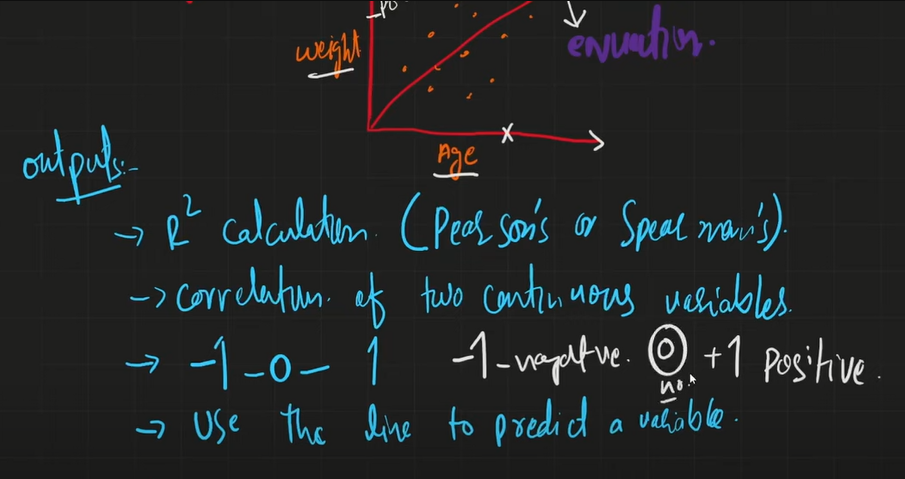 weight
Age
outputs:-
→ R² calculation. (Pearson's or Spearman's).
→ correlation. of two continuous variables.
→ -1 - 0 - 1 -1 - negative. 0 no. +1 Positive.
→ Use the line to predict a variable.